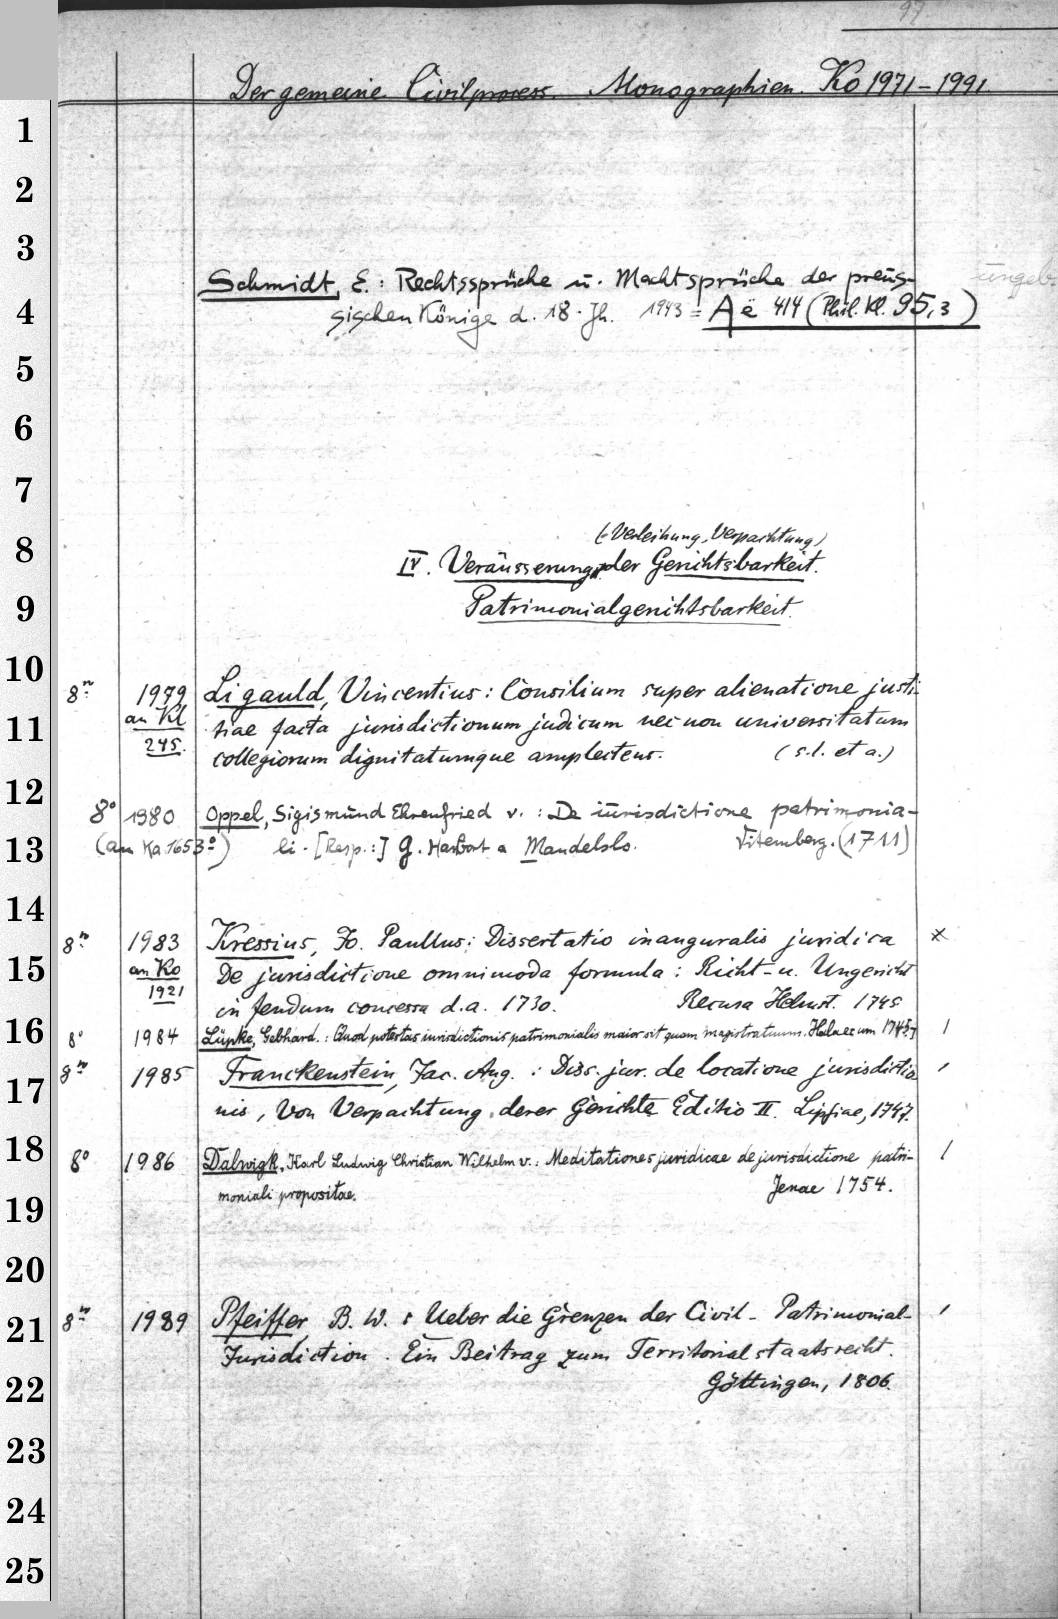 97.
Der gemeine Civilprocess. Monographien. Ko 1971-1991
1
2
3
Schmidt, E.: Rechtssprüche u. Machtsprüche der preus-
4
sischen Könige d. 18. Jh. 1943 = Aë 414 (Phil. Kl. 95,3)
5
6
7
8
(Verleihung, Verpachtung)
IV. Veräusserung der Gerichtsbarkeit.
9
Patrimonialgerichtsbarkeit.
10
8º 1979 Ligauld, Vincentius: Consilium super alienatione justi-
11
an Kl tiae facta jurisdictionum judicum nec non universitatum
245. collegiorum dignitatumque amplectens. (s.l. et a.)
12
8º 1980 Oppel, Sigismund Ehrenfried v.: De iurisdictione patrimonia-
13
(an Ka 1653º) li. [Resp.:] G. Herbort a Mandelslo. Vitemberg. (1711)
14
8º 1983 Kressius, Jo. Paullus: Dissertatio inauguralis juridica x
15
an Ko De jurisdictione omnimoda formula: Richt- u. Ungericht
1921 in fendum concessa d.a. 1730. Recusa Helmst. 1745
16
8º 1984 Lüpke, Gebhard.: Quod potestas iurisdictionis patrimonialis maior sit quam magistratuum. 1
17
8º 1985 Franckenstein, Jac. Aug.: Diss. jur. de locatione jurisdictio
nis, Von Verpachtung derer Gerichte Editio II. Lipsiae, 1747.
18
8º 1986 Dalwigk, Karl Ludwig Christian Wilhelm v.: Meditationes juridicae de jurisdictione patri- 1
19
moniali propositae. Jenae 1754.
20
21
8º 1989 Pfeiffer B. W.: Ueber die Grenzen der Civil-Patrimonial-
Jurisdiction. Ein Beitrag zum Territorialstaatsrecht.
22
Göttingen, 1806.
23
24
25